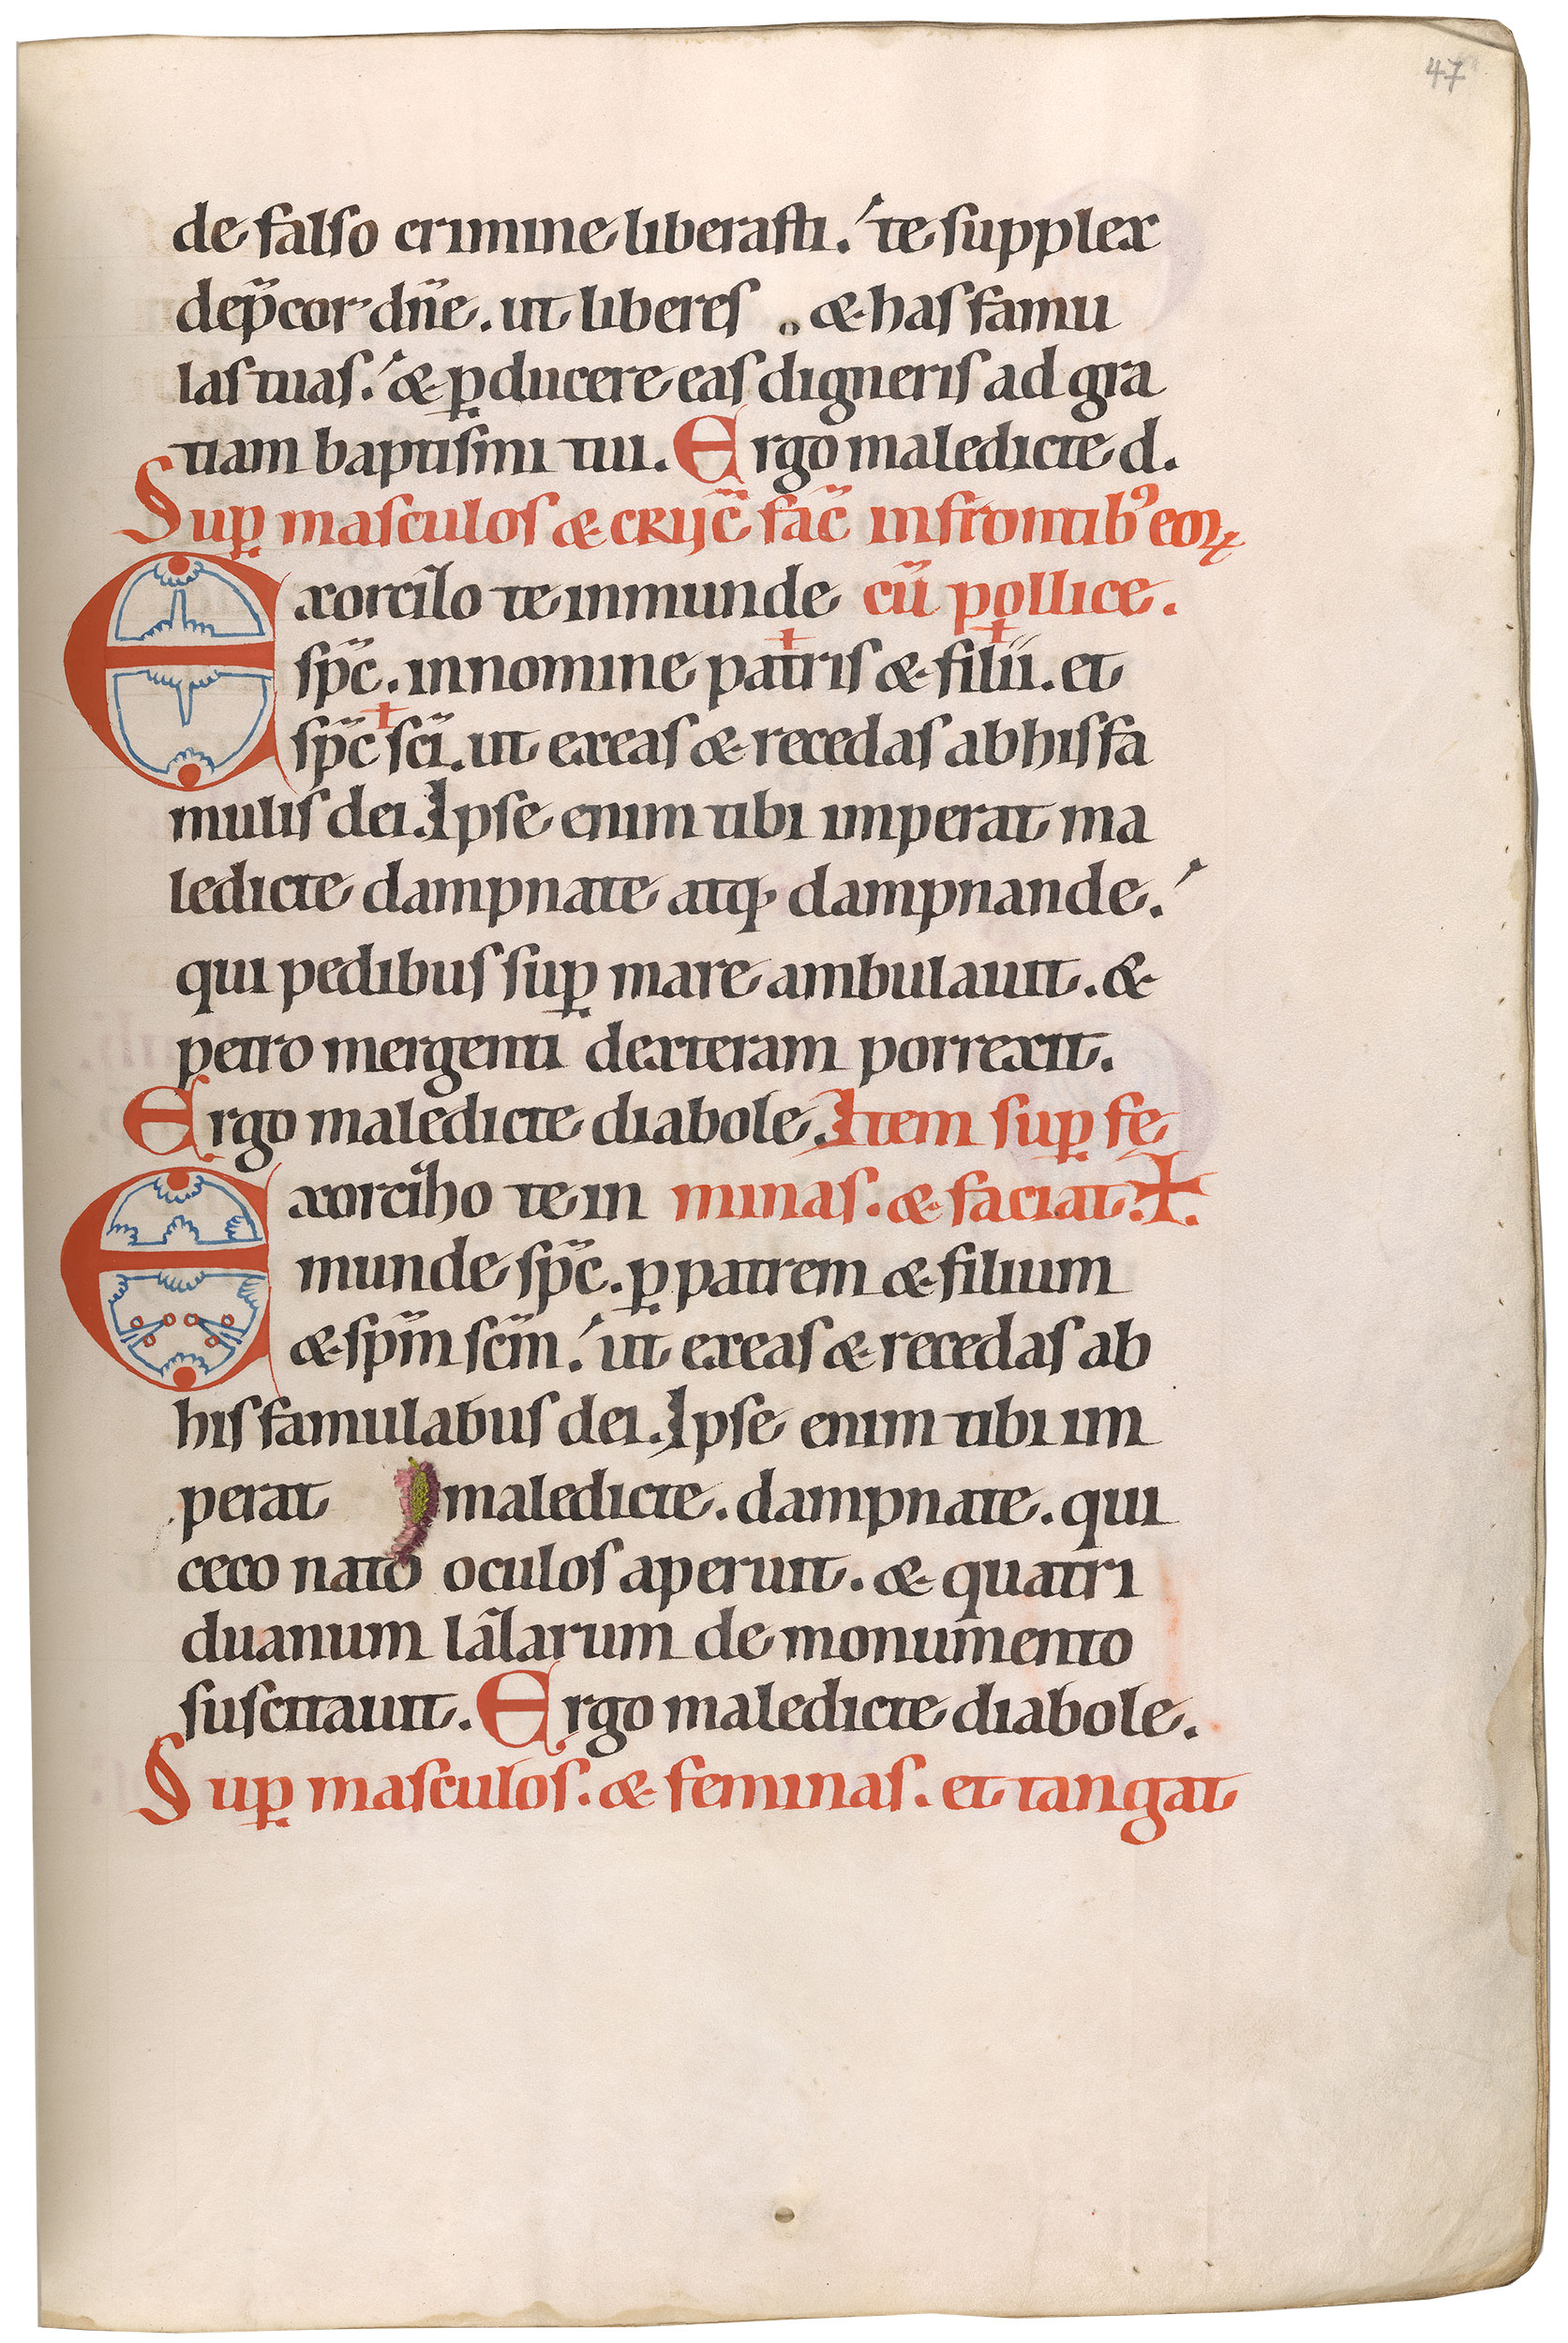 47
de falso crimine liberasti. te supplex
dep̄cor dn̄e. ut liberes & has famu
las tuas. & ꝑducere eas digneris ad gra
tiam baptismi tui. Ergo maledicte d.
Suꝑ masculos & cruc̄ fac̄ in frontibꝰ eoꝝ
Exorcizo te inmunde cū pollice.
sp̄c. in nomine patris & filii. et
sp̄c sc̄i. ut exeas & recedas ab his fa
mulis dei. Ipse enim tibi imperat ma
ledicte dampnate atq; dampnande.
qui pedibus suꝑ mare ambulauit. &
petro mergenti dexteram porrexit.
Ergo maledicte diabole. Item suꝑ fe
Exorcizo te in minas. & faciat. ✝.
munde sp̄c. ꝑ patrem & filium
& sp̄m sc̄m. ut exeas & recedas ab
his famulabus dei. Ipse enim tibi im
perat maledicte. dampnate. qui
ceco nato oculos aperuit. & quatri
duanum lazarum de monumento
suscitauit. Ergo maledicte diabole.
Suꝑ masculos. & feminas. et tangat